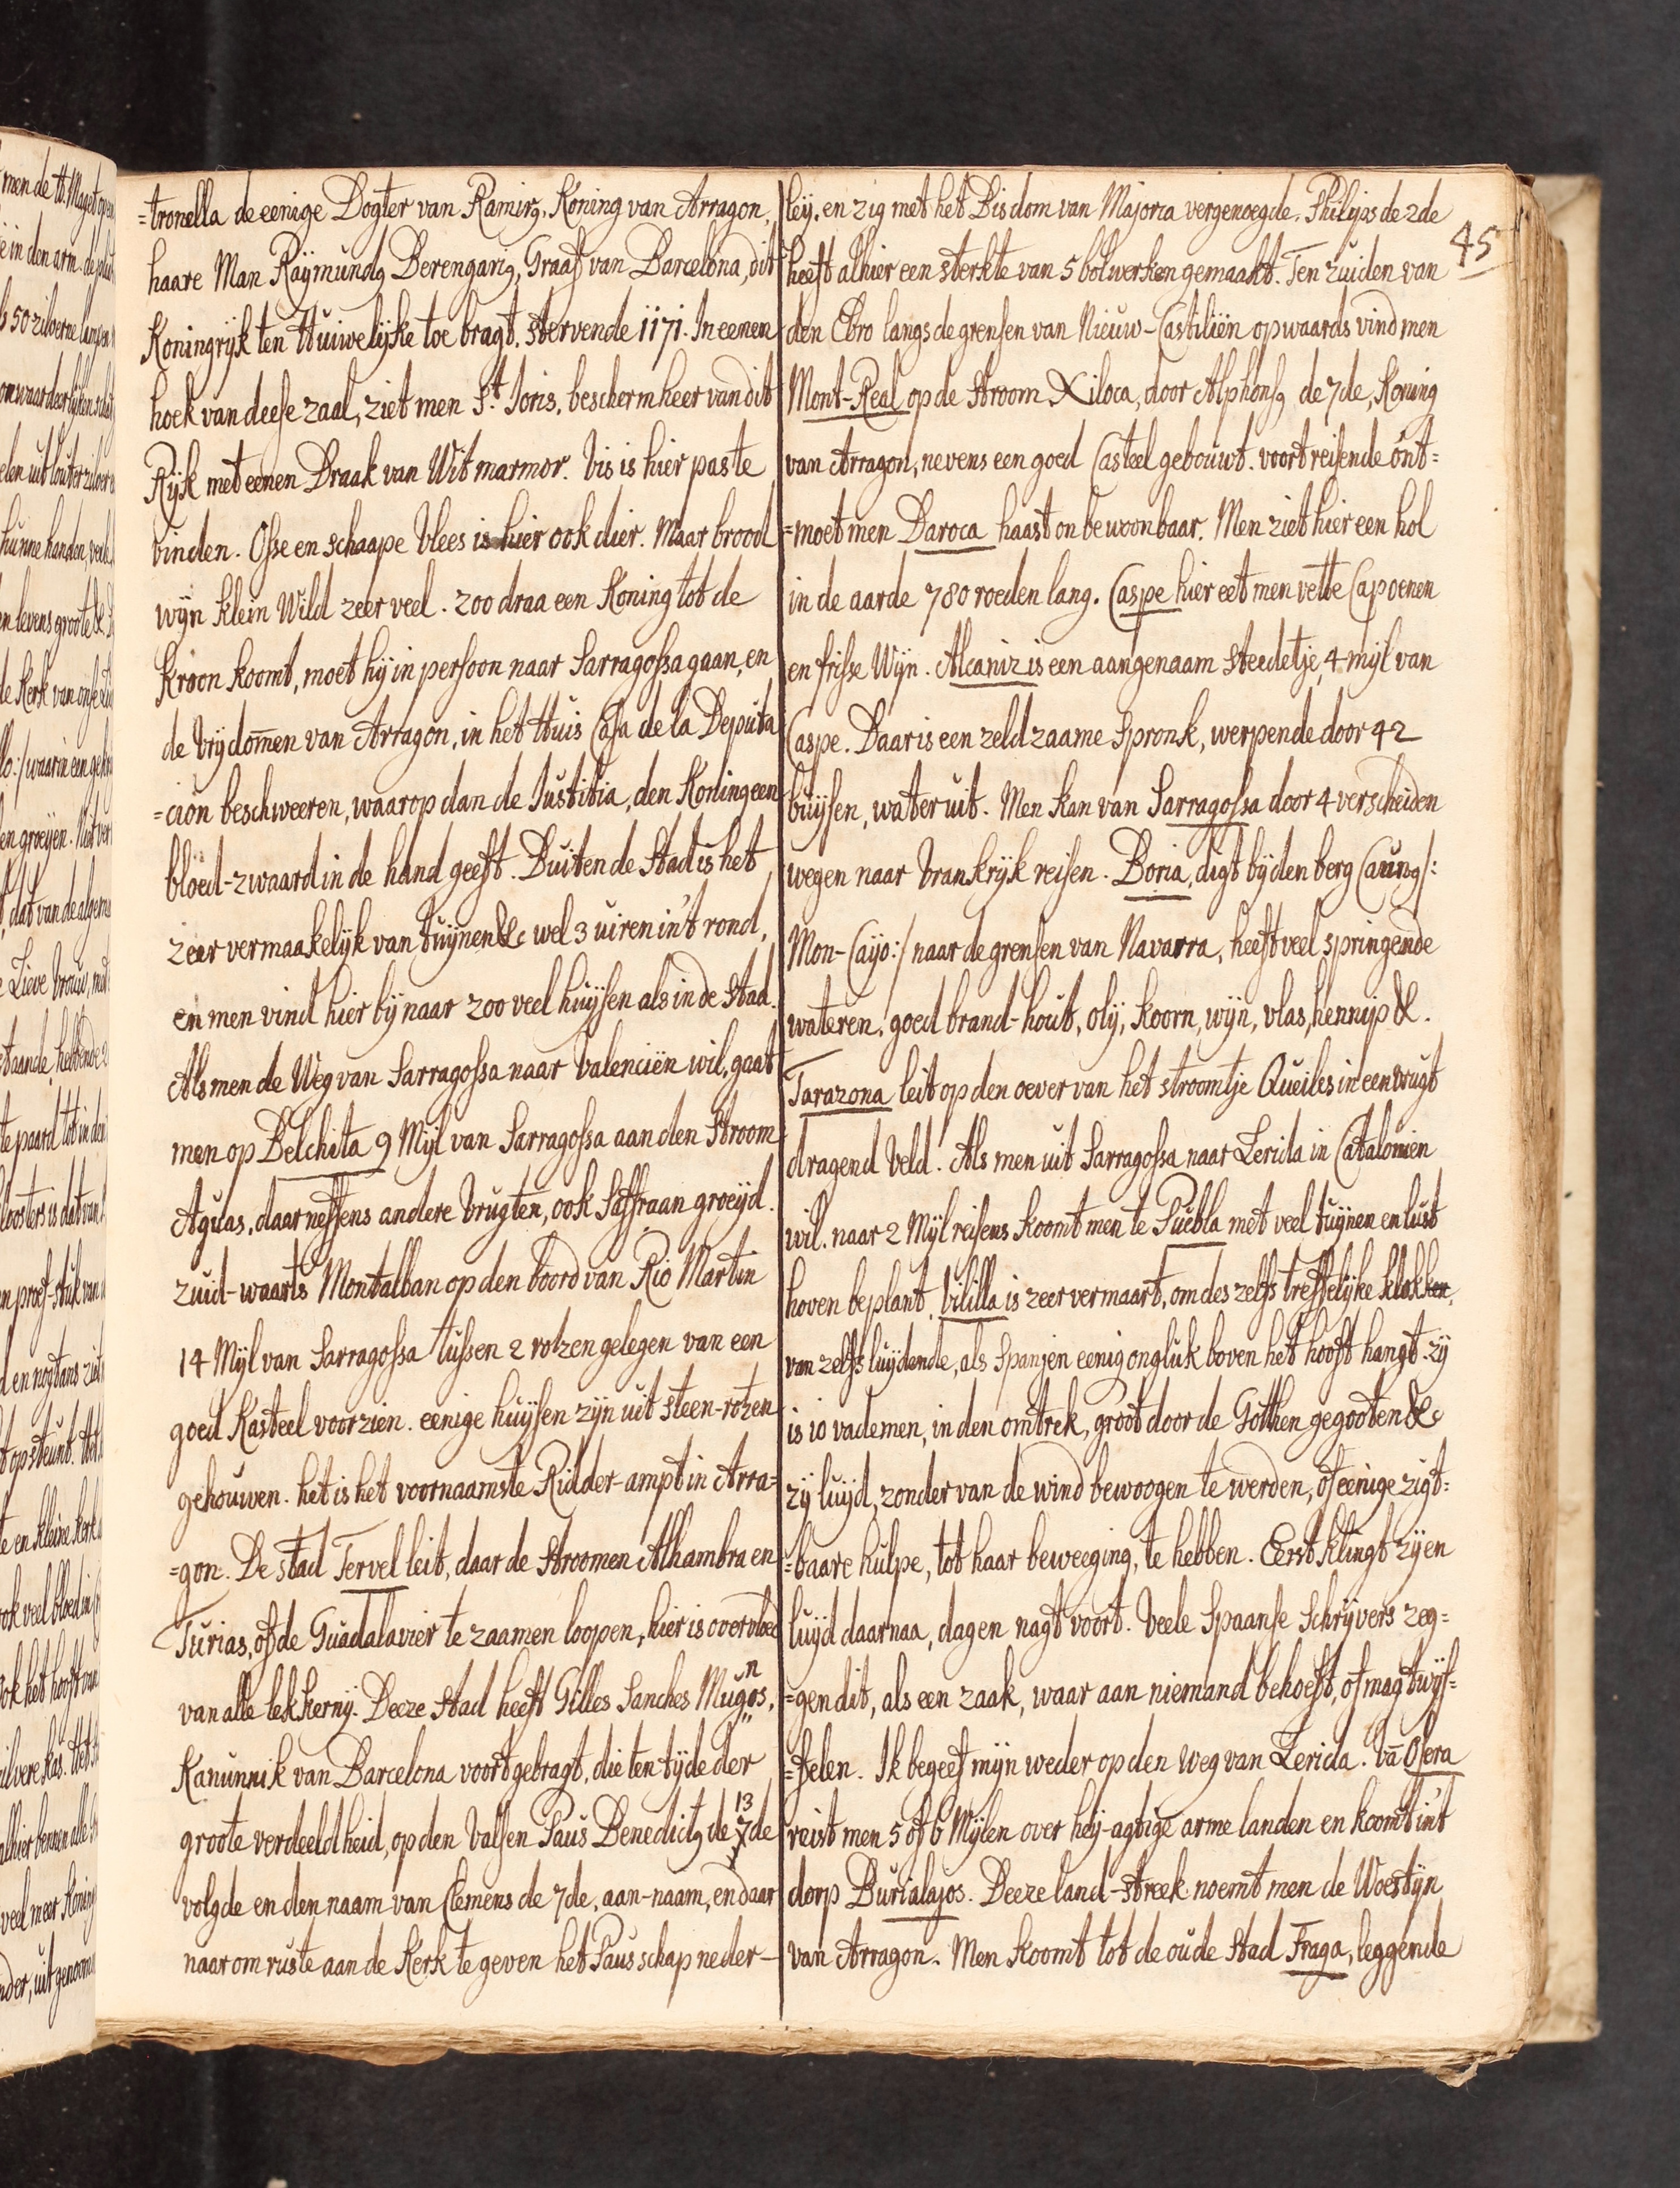 =tronella de eenige Dogter van Ramirꝯ, Koning van Arragon,
haare Man Raÿmundꝯ Berengariꝯ, Graaf van Barcelona, dit
Koningrijk ten Huiwelijke toe bragt. stervende 1171. In eenen
hoek van deese zaal, ziet men St. Joris, beschermheer van dit
Rijk met eenen Draak van Wit marmor. Vis is hier pas te
vinden. Osse en schaape vlees is hier ook dier. Maar brood
wijn klein Wild zeer veel. zoo draa een Koning tot de
Kroon koomt, moet hij in persoon naar Sarragossa gaan, en
de vrijdom̄en van Arragon, in het Huis Casa de la Deputa
=ción beschweeren, waarop dan de Justitia, den Koning een
bloed-zwaard in de hand geeft. Buiten de Stad is het
zeer vermaakelijk van tuijnen &c wel 3 uiren in't rond,
en men vind hier bij naar zoo veel huijsen als in de Stad.
Als men de Weg van Sarragossa naar Valenciën wil, gaat
men op Belchita 9 Mijl van Sarragossa aan den Stroom
Aguas, daar neffens andere vrugten, ook Saffraan groeijd.
zuid-waarts Montalban op den boord van Rio Martin
14 Mijl van Sarragossa tussen 2 rotzen gelegen van een
goed Kasteel voorzien. eenige huijsen zijn uit steen-rotzen
gehouwen. het is het voornaamste Ridder-ampt in Arra=
=gon. De stad Tervel leit, daar de Stroomen Alhambra en
Turias, of de Guadalavier te zaamen loopen, hier is overvloed
van alle lekkernij. Deeze stad heeft Gilles Sanches Mugnos,
Kanunnik van Barcelona voortgebragt, die ten tijde der
groote verdeeldheid, op den Valsen Paus Benedictꝯ de 13 7de
volgde en den naam van Clemens de 7de, aan-naam, en daar
naar om ruste aan de Kerk te geven het Pausschap neder-
45
leij. en zig met het Bisdom van Majorca vergenoegde. Philips de 2de
heeft alhier een sterkte van 5 bolwerken gemaakt. Ten zuiden van
den Ebro langs de grensen van Nieuw-Castiliën opwaards vind men
Mont-Real op de Stroom Xiloca, door Alphonsꝯ de 7de, Koning
van Arragon, nevens een goed Casteel gebouwt. voort reisende ont=
=moet men Daroca haast onbewoonbaar. Men ziet hier een hol
in de aarde 780 roeden lang. Caspe hier eet men vette Capoenen
en frisse Wijn. Alcaniz is een aangenaam steedetje, 4 mijl van
Caspe. Daar is een zeldzaame Spronk, werpende door 42
buijsen, water uit. Men kan van Sarragossa door 4 verscheiden
wegen naar Vrankrijk reisen. Boria, digt bij den berg Caunꝯ/:
Mon-Caÿo:/ naar de grensen van Navarra, heeft veel springende
wateren, goed brand-hout, olij, koorn, wijn, vlas, hennip &.
Tarazona leit op den oever van het stroomtje Queiles in een vrugt
dragend Veld. Als men uit Sarragossa naar Lerida in Catalonien
wil. naar 2 Mijl reisens koomt men te Puebla met veel tuijnen en lust
hoven beplant. Vililla is zeer vermaart, om des zelfs treffelijke klokken,
van zelfs luijdende, als Spanjen eenig ongluk boven het hooft hangt. zij
is 10 vademen, in den omtrek, groot door de Gothen gegooten &c
zij luijd, zonder van de wind bewoogen te werden, of eenige zigt=
=baare hulpe, tot haar beweeging, te hebben. Eerst klingt zij en
luijd daarnaa, dag en nagt voort. Veele Spaanse Schrijvers zeg=
=gen dit, als een zaak, waar aan niemand behoeft, of mag twijf=
=felen. Ik begeef mijn weder op den weg van Lerida. Vā Osera
reist men 5 of 6 Mijlen over heij-agtige arme landen en koomt in't
dorp Burialajos. Deeze land-streek noemt men de Woestijn
van Arragon. Men koomt tot de oude stad Fraga, leggende